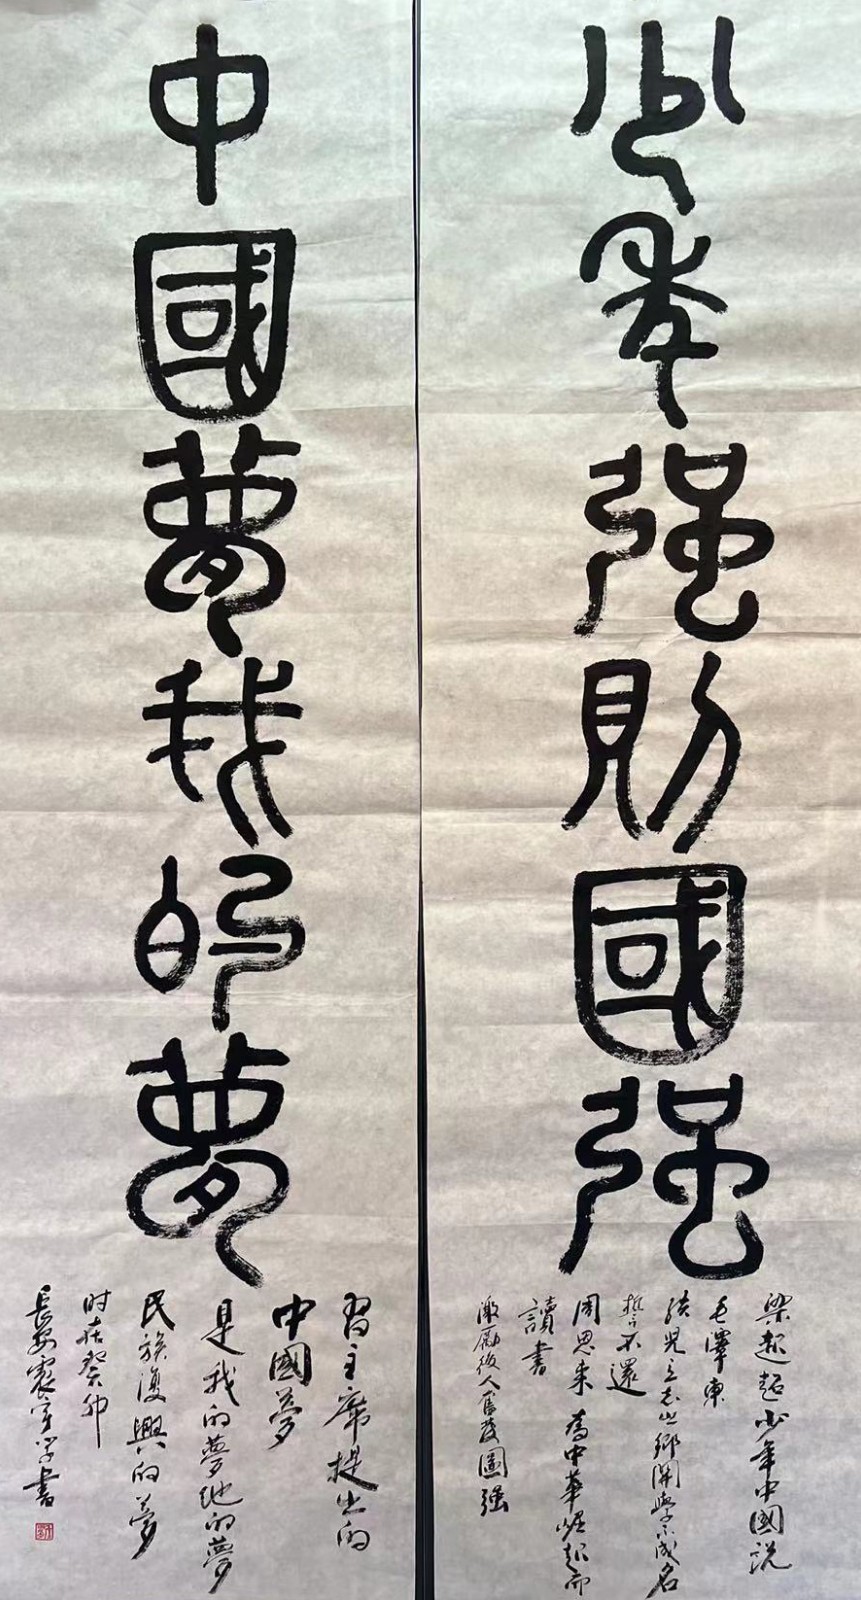 少年強則國強
梁起超少年中國説
毛澤東
孩児立志出鄉関學不成名
誓不還
周恩来為中華崛起而
讀書
激勵後人奮發圖強
中國夢我的夢
習主席提出的
中國夢
是我的夢他的夢
民族復興的夢
时在癸卯
長安
書